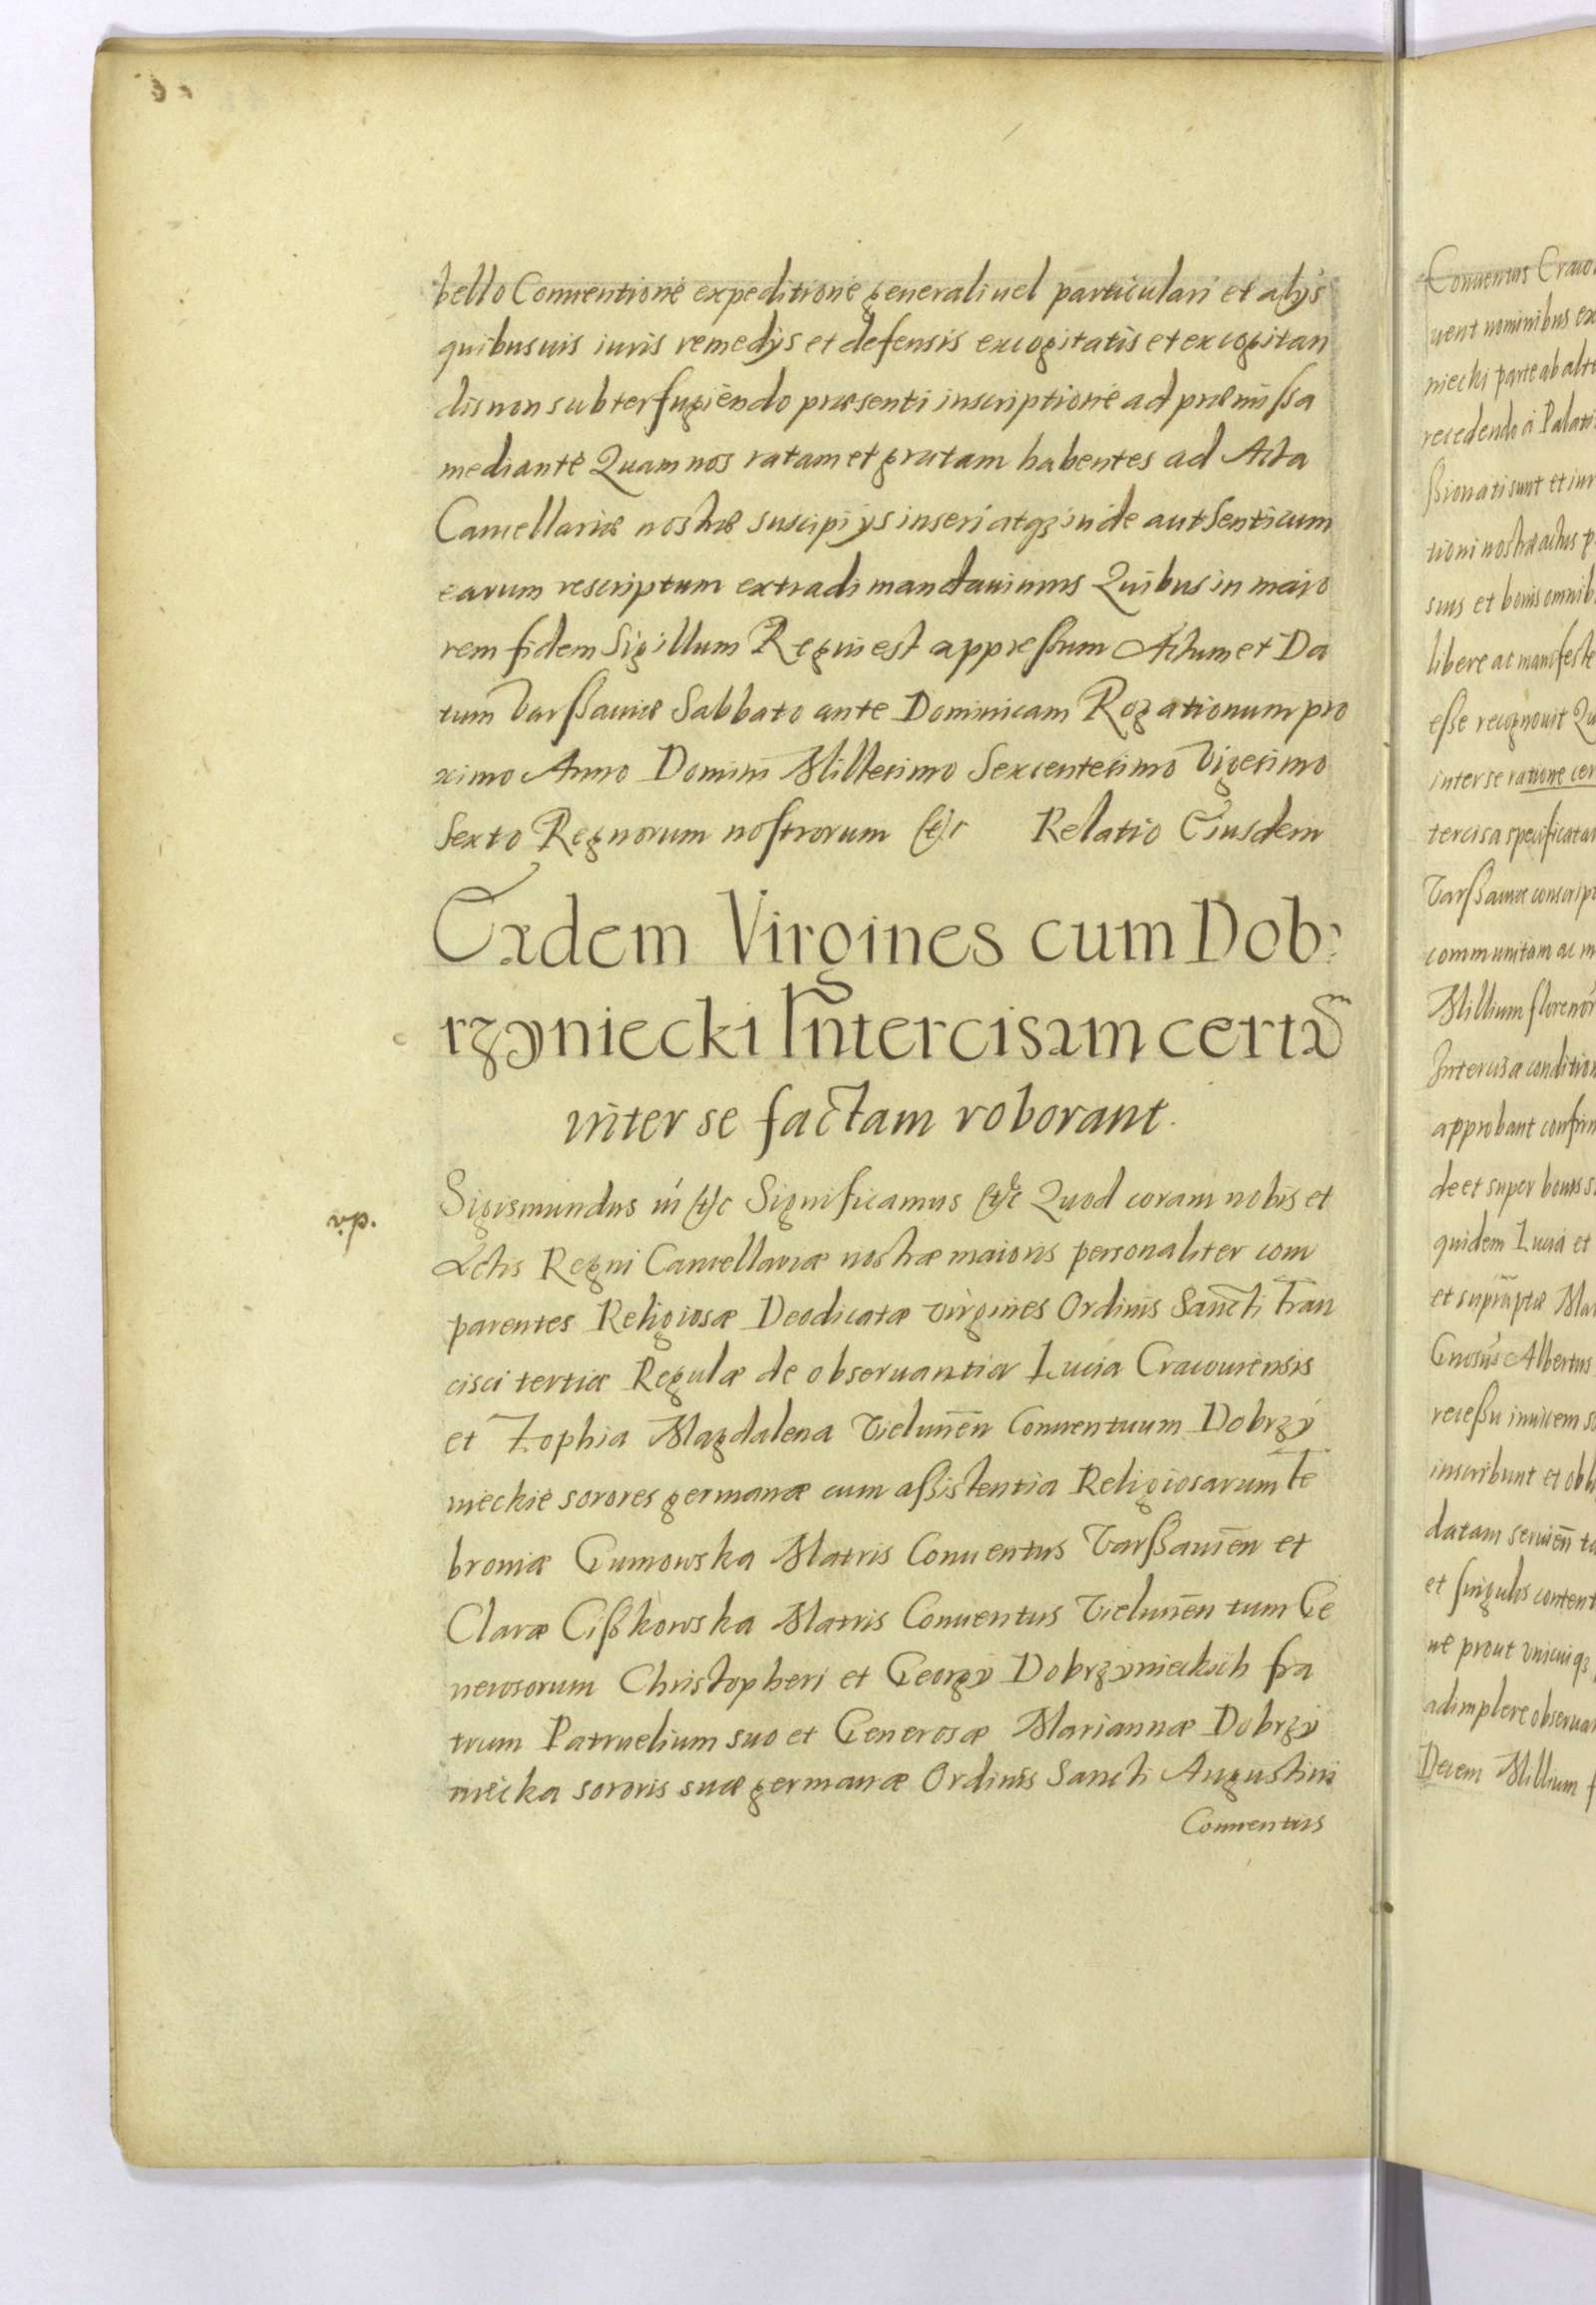 bello Conuentione expeditione generali uel particulari et alijs
quibusuis iuris remedijs et defensis excogitatis et excogitan
dis non subterfugiendo præsenti inscriptione ad præmissa
mediante Quam nos ratam et gratam habentes ad Acta
Cancellariæ nostræ suscipi ijs inseri atqz inde authenticum
earum rescriptum extradi mandauimus Quibus in maio
rem fidem Sigillum Regni est appressum Actum et Da
tum Varssauiæ Sabbato ante Dominicam Rogationum pro
ximo Anno Domini Millesimo Sexcentesimo Vigesimo
Sexto Regnorum nostrorum etc Relatio Eiusdem
Eædem Virgines cum Dob
rzyniecki Intercisam certā
inter se factam roborant.
Sigismundus iii etc Significamus etc Quod coram nobis et
Actis Regni Cancellariæ nostræ maioris personaliter com
parentes Religiosæ Deodicatæ virgines Ordinis Sancti Fran
cisci tertiæ Regulæ de obseruantia Lucia Cracouiensis
et Zophia Magdalena Vielunen Conuentuum Dobrzy
nieckie sorores germanæ cum assistentia Religiosarum Fe
broniæ Gumowska Matris Conuentus Varssauien et
Claræ Cisskowska Matris Conuentus Vielunen tum Ge
nerosorum Christopheri et Georgy Dobrzynieckich fra
trum Patruelium suo et Generosæ Mariannæ Dobrzy
niecka sororis suæ germanæ Ordinis Sancti Augustini
Conuentus
Conuentus Craco
uent nominibus ex
niecki parte ab alte
recedendo a Palati
ssionati sunt et iur
tioni nostræ actus p
suis et bonis omnib
libere ac manifeste
esse recognouit Qu
inter se ratione cer
tercisa specificata
Varssauiæ conscrip
communitam ac m
Millium floreno
Intercisa condition
approbant confir
de et super bonis s
quidem Lucia et
et supraptæ Ma
Gnosus Albertus
recessu inuicem s
inscribunt et obl
datam seruien t
et singulis content
ne prout vnicuiqz
adimplere obserua
Decem Millium f